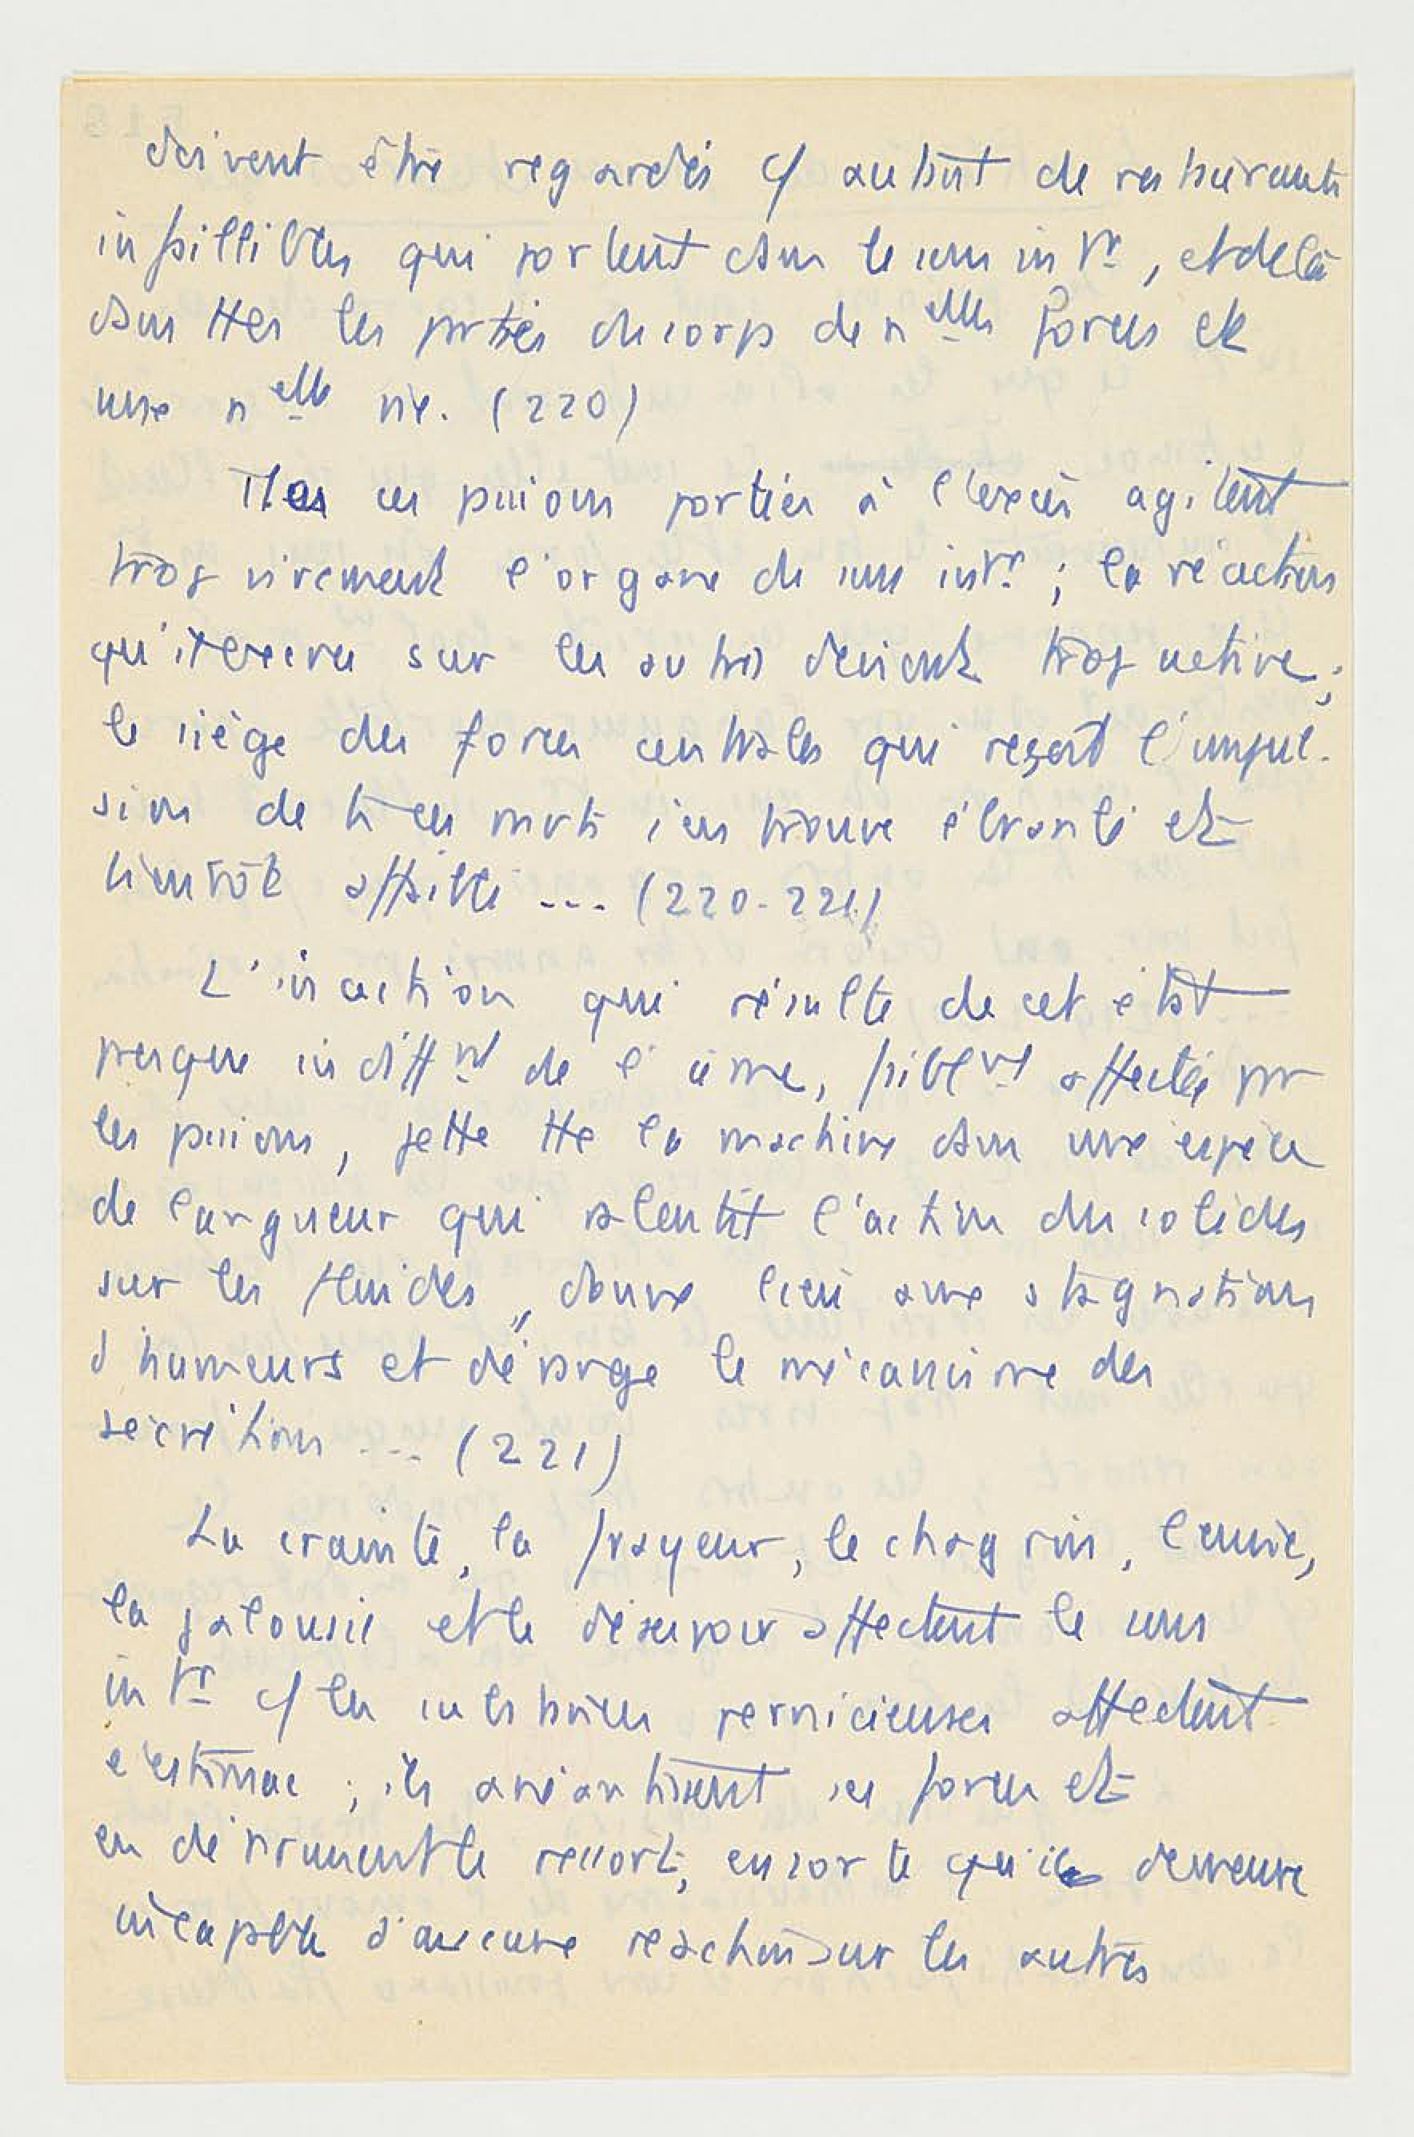 doivent être regardés c/ autant de restaurants
infaillibles qui portent dans le sens intr, et de là
dans ttes les parties du corps de nelles forces et
une nelle vie. (220)
Mais ces passions portées à l'excès agitent
trop vivement l'organe du sens intr ; la réaction
qu'il exerce sur les autres devient trop active ;
le siège des forces centrales qui reçoit l'impul-
sion de ts ces mvts s'en trouve ébranlé et
bientôt affaibli --- (220-221)
L'inaction qui résulte de cet état
presque indiffnt de l'âme, faiblnt affectée par
les passions, jette tte la machine dans une espèce
de langueur qui ralentit l'action des solides
sur les fluides, donne lieu a une stagnation
d'humeurs et dérange le mécanisme des
sécrétions --- (221)
La crainte, la frayeur, le chagrin, l'envie,
la jalousie et le désespoir affectent le sens
intr c/ les substances pernicieuses affectent
l'estomac ; ils anéantissent ses forces et
en dépriment le ressort, en sorte qu'il demeure
incapable d'aucune réaction sur les autres